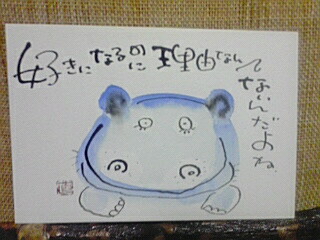 好きになるのに理由なんて
ないんだよね